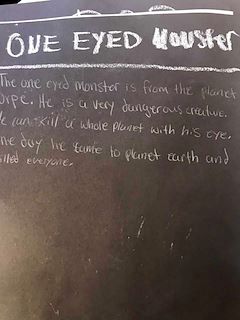 ONE EYED MONSTER
The one eyed monster is from the planet
He is a very dangerous creative.
He can skill a whole planet with his eye.
One day he came to planet earth and
killed everyone.